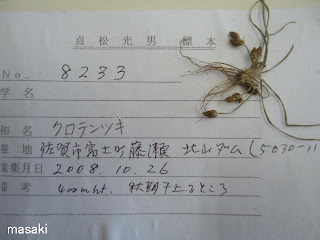 貞松光男 標本
No. 8233
学名
和名 クロテンツキ
産地 佐賀市富士町藤瀬 北山ダム (5030-11
採集月日 2008.10.26
備考 400mht.
masaki